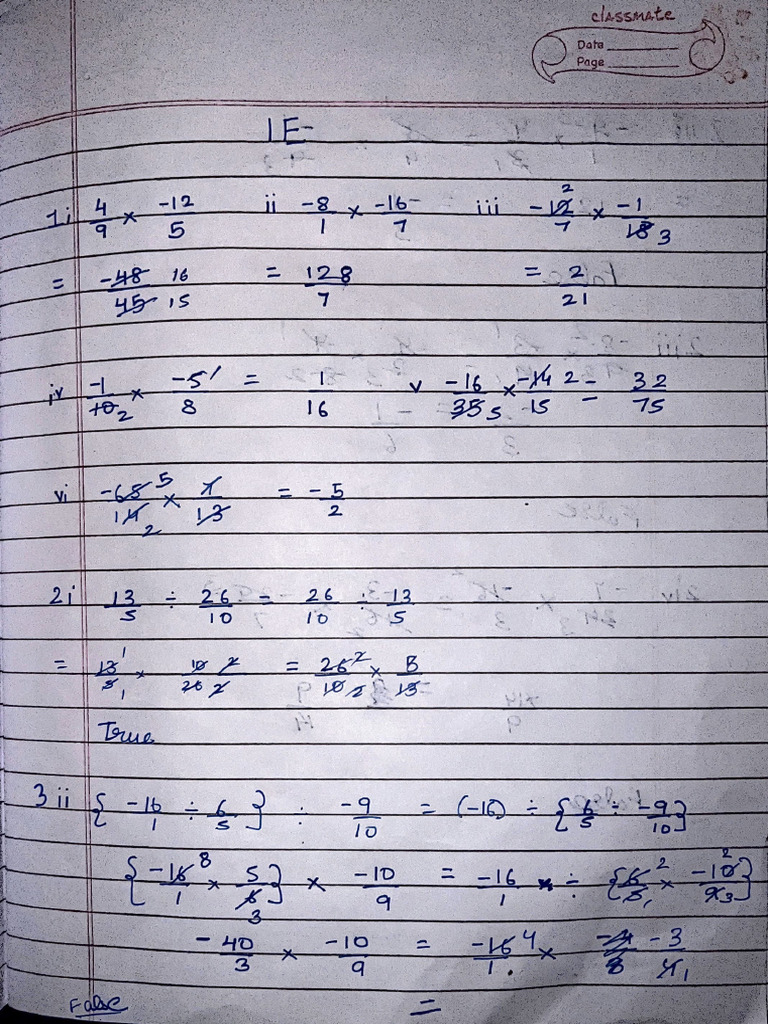 classmate
Date
Page
1E
1i 4/9 × -12/5 ii -8/1 × -16/7 iii -12/7 2 × -1/18 3
= -48/45 16/15 = 128/7 = 2/21
iv -1/10 2 × -5/8 1 = 1/16 v -16/35 5 × -14/15 2 = 32/75
vi -65/14 5/2 × 7/13 = -5/2
2i 13/5 ÷ 26/10 = 26/10 ÷ 13/5
= 13/5 1/1 × 10/26 2/2 = 26/10 2/2 × 5/13
True
3 ii {-16/1 ÷ 6/5} ÷ -9/10 = (-16) ÷ {6/5 ÷ -9/10}
{-16/1 8 × 5/6 3} × -10/9 = -16/1 ÷ {6/5 2/1 × -10/9 2/3}
-40/3 × -10/9 = -16/1 4 × -3/4 1
False =